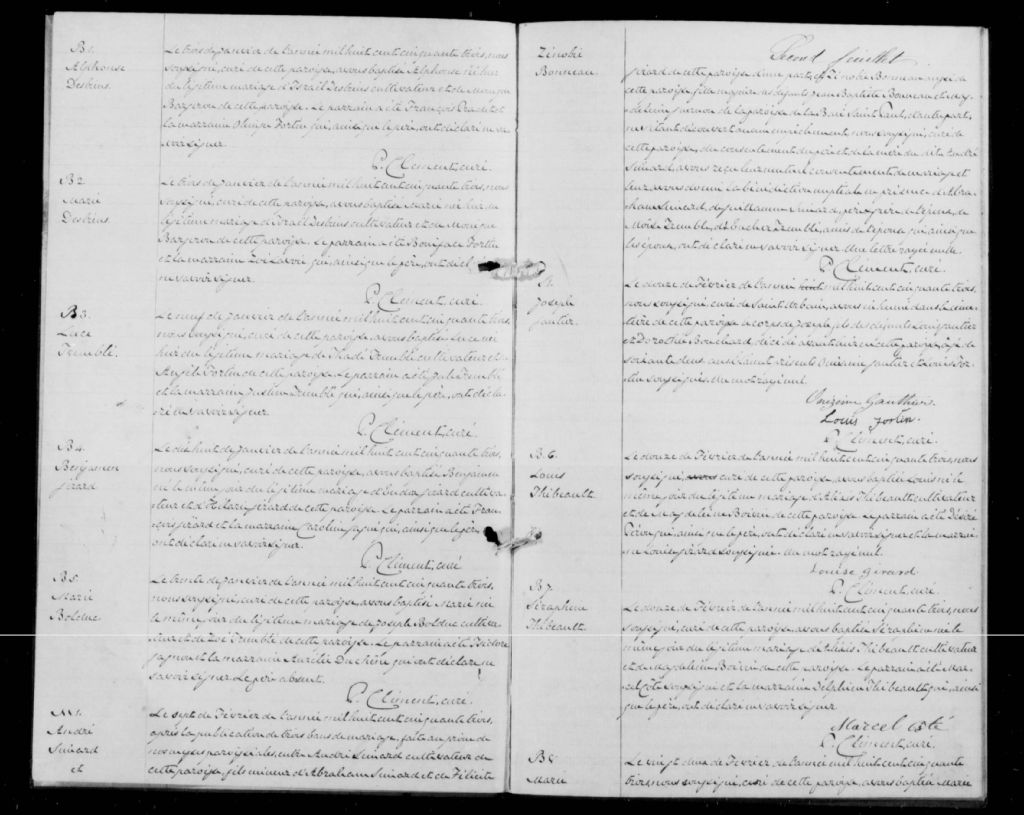 B1.
Alphonse
Desbiens.
Le trois de Janvier de l'année mil huit cent cinquante trois, nous
soussigné, curé de cette paroisse, avons baptisé Alphonse né hier
du légitime mariage d'Israël Desbiens cultivateur et de Monique
Bergeron de cette paroisse. Le parrain a été François
la marraine Olimpe Fortin qui, ainsi que le père, ont déclaré ne sa-
voir signer.
P. Clément, curé.
B2
Marie
Desbiens.
Le trois de Janvier de l'année mil huit cent cinquante trois, nous
soussigné, curé de cette paroisse, avons baptisé Marie née hier du
légitime mariage d'Israël Desbiens cultivateur et de Monique
Bergeron de cette paroisse. Le parrain a été Boniface Fortin
et la marraine Zoé qui, ainsi que le père, ont décl
ne savoir signer.
P. Clément, curé.
B3.
Luce
Tremblé.
Le neuf de Janvier de l'année mil huit cent cinquante trois,
nous soussigné, curé de cette paroisse, avons baptisé Luce née
hier du légitime mariage de Thadé Tremblé cultivateur et
Angèle Fortin de cette paroisse. Le parrain a été Tremblé
et la marraine Justine Tremblé qui, ainsi que le père, ont décla-
ré ne savoir signer.
P. Clément, curé.
B4.
Benjamen
Girard
Le dix huit de Janvier de l'année mil huit cent cinquante trois,
nous soussigné, curé de cette paroisse, avons baptisé Benjamen
né le même jour du légitime mariage d' Girard cultiva-
teur et d' Girard de cette paroisse. Le parrain a été Fran-
çois Girard et la marraine Caroline qui, ainsi que le père,
ont déclaré ne savoir signer.
P. Clément, curé
B5.
Marie
Bolduc.
Le trente de Janvier de l'année mil huit cent cinquante trois,
nous soussigné, curé de cette paroisse, avons baptisé Marie née
le même jour du légitime mariage de Joseph Bolduc cultiva-
teur et de Zoé Tremblé de cette paroisse. Le parrain a été Isidore
Gagnon et la marraine Aurélie Duchêne qui ont déclaré ne
savoir signer. Le père absent.
P. Clément, curé.
M1.
André
Simard
et
Le sept de Février de l'année mil huit cent cinquante trois,
après la publication de trois bans de mariage, faite au prône de
nos messes paroissiales, entre André Simard cultivateur de
cette paroisse, fils mineur d'Abraham Simard et de Félicité
Second feuillet
Zénobé
Bonneau.
Girard de cette paroisse d'une part, et Zénobé Bonneau aussi de
cette paroisse, fille majeure des défunts Jean Baptiste Bonneau et Mag-
deleine de la paroisse de la Baie Saint Paul, d'autre part,
ne s'étant découvert aucun empêchement, nous soussigné, curé de
cette paroisse, du consentement du père et de la mère du dit André
Simard, avons reçu leur mutuel consentement de mariage et
leur avons donné la bénédiction nuptiale en présence d'Abra-
ham Simard, de Guillaume Simard père et frère de l'époux, de
Moïse Tremblé, d'Eucher Tremblé, amis de l'épouse qui ainsi que
les époux, ont déclaré ne savoir signer. Une lettre rayée nulle.
P. Clément, curé.
S1.
Joseph
Gautier.
Le douze de Février de l'année mil huit cent cinquante trois,
nous soussigné curé de Saint Urbain, avons inhumé dans le cime-
tière de cette paroisse le corps de Joseph fils des défunts Gautier
et Dorothée Bouchard décédé avant hier en cette paroisse âgé de
soixante deux ans. Etaient présents Onézime Gautier et Louis For-
tin soussignés. Un mot rayé nul.
Onezime Gauthier.
Louis fortin.
P. Clément, curé.
B6.
Louis
Thibeault.
Le douze de Février de l'année mil huit cent cinquante trois, nous
soussigné, avons curé de cette paroisse, avons baptisé Louis né le
même jour du légitime mariage d'Alexis Thibeault cultivateur
et de Magdeleine Boivin de cette paroisse. Le parrain a été Désiré
qui, ainsi que le père, ont déclaré ne savoir signer et la marrai-
ne Louise Girard soussignée. Un mot rayé nul.
Louise Girard.
P. Clément, curé.
B7.
Séraphin
Thibeault.
Le douze de Février de l'année mil huit cent cinquante trois, nous
soussigné, curé de cette paroisse, avons baptisé Séraphin né le
même jour du légitime mariage d'Alexis Thibeault cultivateur
et de Magdeleine Boivin de cette paroisse. Le parrain a été Mar-
cel Côté soussigné et la marraine Delphine Thibeault qui, ainsi
que le père, ont déclaré ne savoir signer.
Marcel Coté
P. Clément, curé.
B8
Marie
Le vingt deux de Février de l'année mil huit cent cinquante
trois, nous soussigné, curé de cette paroisse, avons baptisé Marie